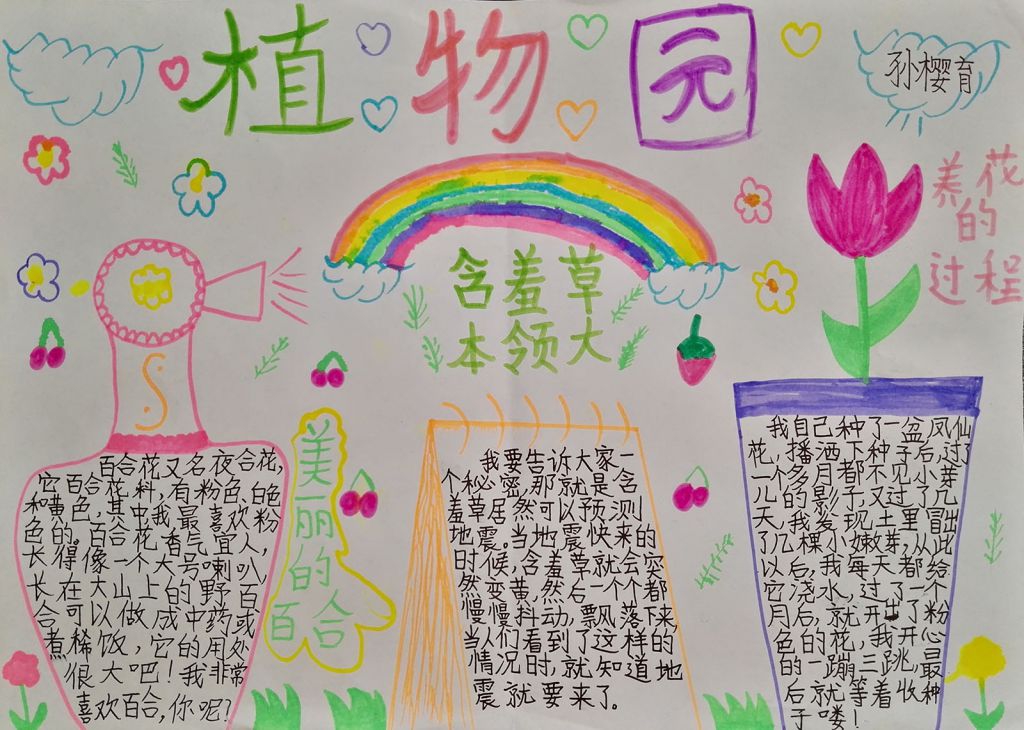 植物园
孙樱育
养花的过程
含羞草
本领大
美丽的百合
百合花又名夜合花,
它百合花科,有粉色、白色
和黄色,其中,我最喜欢粉
色的。百合花香气宜人,
长得像一个大号喇叭,
长在山上的野百
合可以做成中药或
煮稀饭,它的用处
很大吧!我非常
喜欢百合,你呢?
我要告诉大家一
个秘密,那就是含
羞草居然可以预测
地震。当地震快来的
时候,含羞草就会突
然变黄,然后一个个都
慢慢抖动,飘落下来
当人们看到了这样的
情况时,就知道地
震就要来了。
我自己种了一盆凤仙
花,播洒种子后,过了
一个多月都不见小芽
儿的影子,又过了几
天,我发现土里冒出
了几棵嫩芽,从此
以后,我每天都给
它浇水,过了一个
月后,就开出了粉
色的花,我开心
的一蹦三跳,最
后就等着收种
子喽!